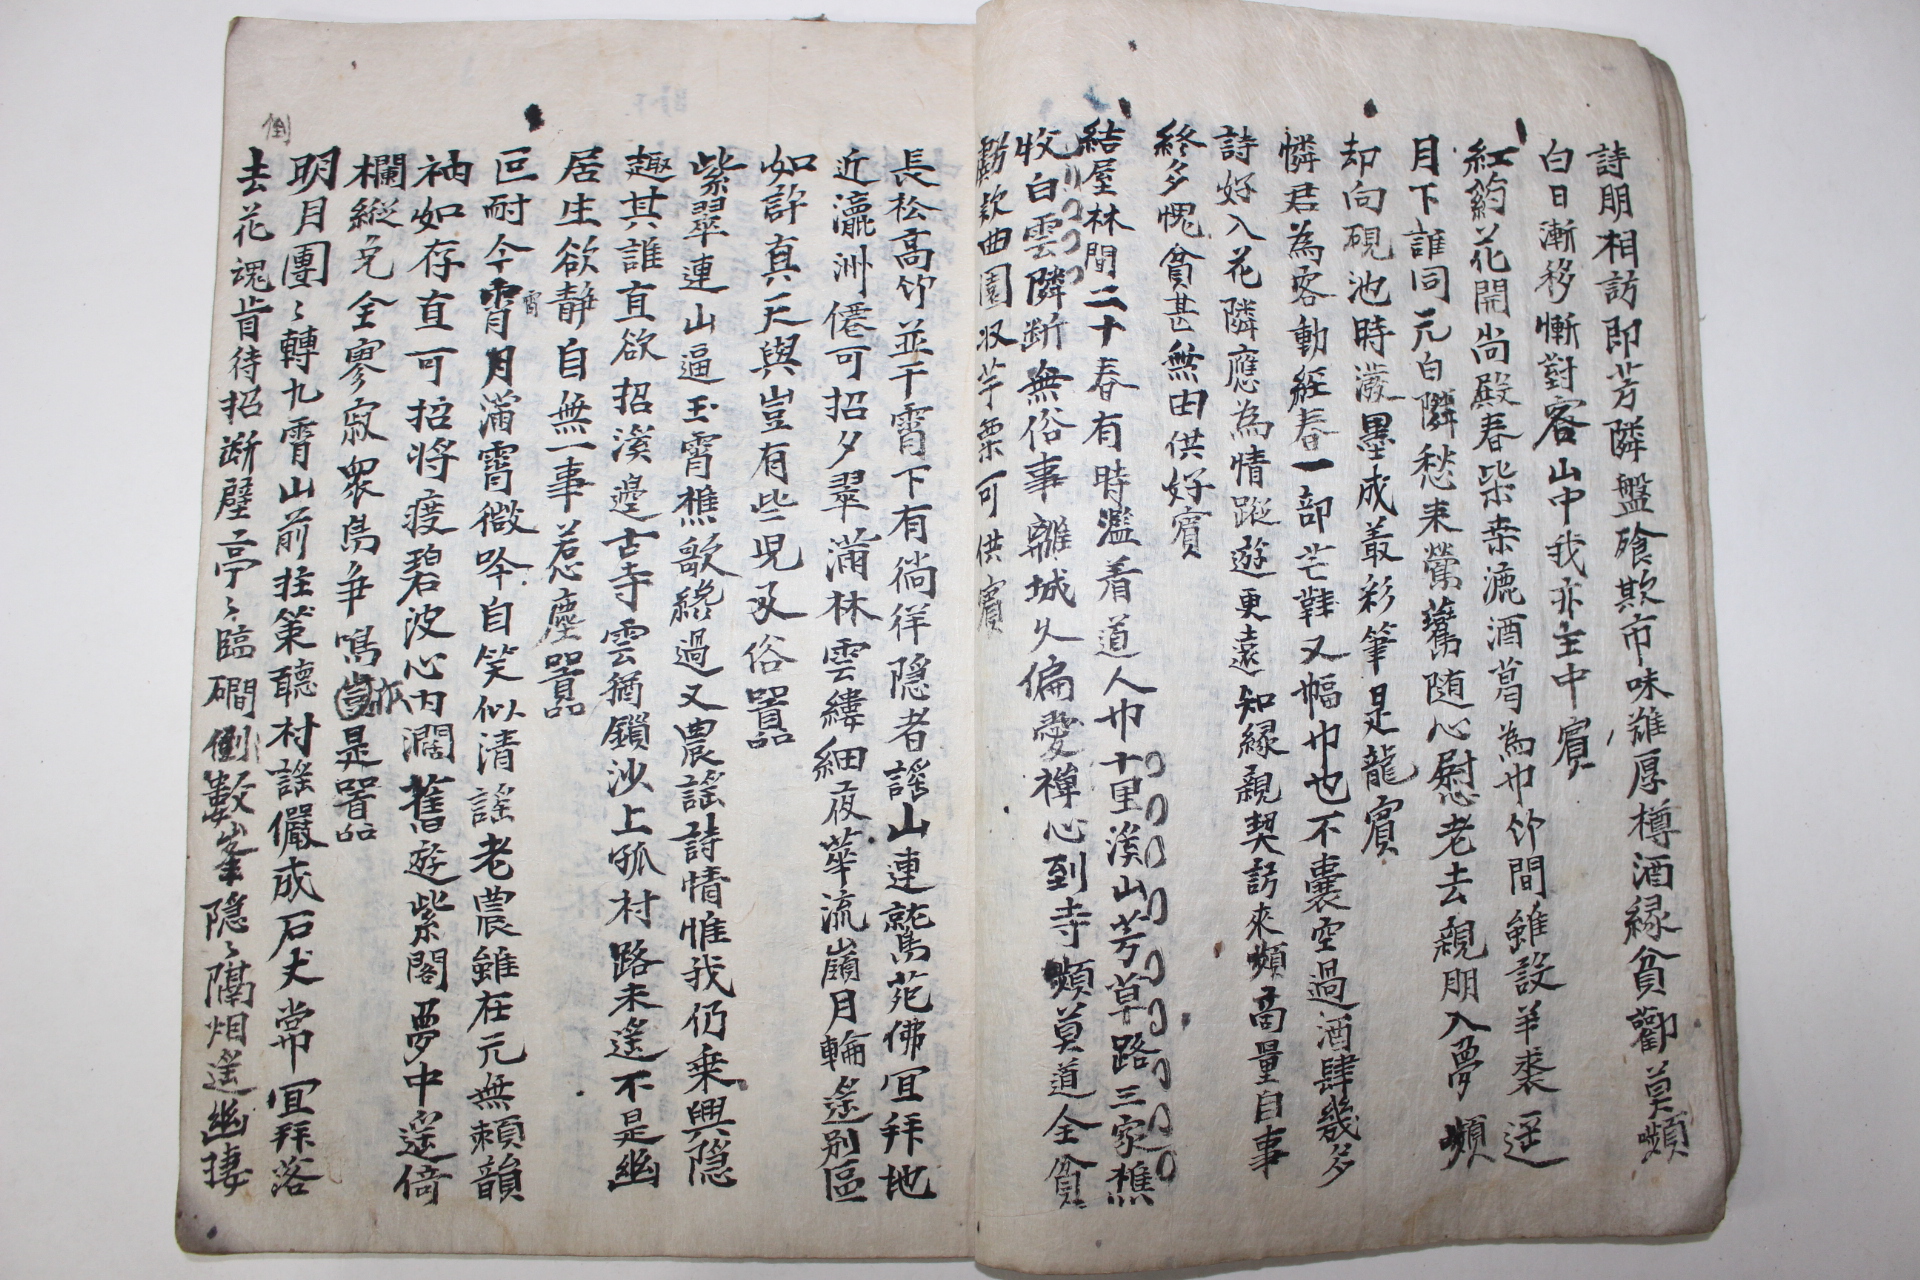 詩朋相訪即芳隣盤飱欺市味難厚樽酒緣貧勸莫嚬
白日漸移慚對客山中我亦主中賓
紅約花開尚殿春柴桑漉酒葛為巾竹間雖設羊裘逕
月下誰同元白隣愁來鶯舊随心慰老去親朋入夢頻
却向硯池時潑墨成叢彩筆是龍賓
憐君為客動經春一部芒鞋又幅巾也不囊空過酒肆幾多
詩好入花隣應為情蹤遊更遠知緣親契訪來頻商量自事
終多愧貧甚無由供好賓
結屋林間二十春有時濫着道人巾十里溪山芳草路三家樵
牧白雲隣断無俗事離城久偏愛禪心到寺頻莫道全貧
剺款曲園収芋栗可供賓
長松高竹並干霄下有徜徉隠者謠山連鷲苑佛宜拜地
近瀛洲僊可招夕翠滿林雲縷細夜華流嶺月輪遙別區
如許真天與豈有些児及俗嚣
紫翠連山逼玉霄樵歌終過又農謡詩情惟我仍乗興隠
趣其誰直欲招溪邊古寺雲猶鎖沙上孤村路未遙不是幽
居生欲静自無一事惹塵嚣
叵耐今宵月滿霄微吟自笑似清謡老農雖在元無頼韻
宵
衲如存直可招将疲碧波心内濶舊遊紫閣夢中遙倚
欄縱免全寥寂衆鳥争鳴亦是嚣
明月團〻轉九霄山前拄策聽村謡儼成石丈常宜拜落
去花魂肯待招断壁亭〻臨磵倒數峯隠〻隔烟遙幽捿
倒